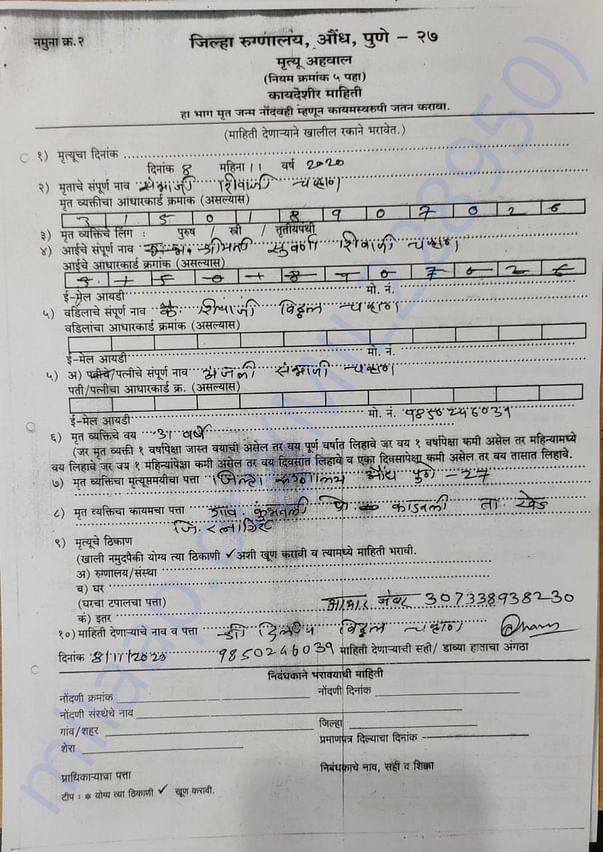 नमुना क्र.२
जिल्हा रुग्णालय, औंध, पुणे - २७
मृत्यू अहवाल
(नियम क्रमांक ५ पहा)
कायदेशीर माहिती
हा भाग मृत जन्म नोंदवही म्हणून कायमस्वरुपी जतन करावा.
(माहिती देणाऱ्याने खालील रकाने भरावेत.)
१) मृत्यूचा दिनांक
दिनांक 8 महिना 11 वर्ष 2020
२) मृताचे संपूर्ण नाव संभाजी शिवाजी चव्हाण
मृत व्यक्तीचा आधारकार्ड क्रमांक (असल्यास)
3 1 5 0 1 8 9 0 7 0 2 6
३) मृत व्यक्तिचे लिंग : पुरुष / स्त्री / तृतीयपंथी
४) आईचे संपूर्ण नाव श्रीमती सुवर्णा शिवाजी चव्हाण
आईचे आधारकार्ड क्रमांक (असल्यास)
3 1 5 0 1 8 9 0 7 0 2 6
ई-मेल आयडी मो. नं.
५) वडिलांचे संपूर्ण नाव कै. शिवाजी विठ्ठल चव्हाण
वडिलांचा आधारकार्ड क्रमांक (असल्यास)
ई-मेल आयडी मो. नं.
५) अ) पतीचे/पत्नीचे संपूर्ण नाव अंजली संभाजी चव्हाण
पती/पत्नीचा आधारकार्ड क्र. (असल्यास)
ई-मेल आयडी मो. नं. ९850246039
६) मृत व्यक्तिचे वय 31 वर्षे
(जर मृत व्यक्ती १ वर्षापेक्षा जास्त वयाची असेल तर वय पूर्ण वर्षात लिहावे जर वय १ वर्षापेक्षा कमी असेल तर महिन्यामध्ये
वय लिहावे जर वय १ महिन्यापेक्षा कमी असेल तर वय दिवसांत लिहावे व एका दिवसापेक्षा कमी असेल तर वय तासात लिहावे.
७) मृत व्यक्तिचा मृत्यूसमयीचा पत्ता जिल्हा रुग्णालय औंध पुणे - 27
८) मृत व्यक्तिचा कायमचा पत्ता गाव कुंभवली पो काडवली ता. खेड
जि. रत्नागिरी
९) मृत्यूचे ठिकाण
(खाली नमुदपैकी योग्य त्या ठिकाणी ✓ अशी खूण करावी व त्यामध्ये माहिती भरावी.
अ) रुग्णालय/संस्था
ब) घर
(घरचा टपालचा पत्ता) आधार नंबर 307338938230
क) इतर
१०) माहिती देणाऱ्याचे नाव व पत्ता श्री दिलीप विठ्ठल चव्हाण
दिनांक 8/11/2020 9850246039 माहिती देणाऱ्याची सही/ डाव्या हाताचा अंगठा
निबंधकाने भरावयाची माहिती
नोंदणी क्रमांक नोंदणी दिनांक
नोंदणी संस्थेचे नाव
गांव/शहर जिल्हा
शेरा प्रमाणपत्र दिल्याचा दिनांक
प्राधिकाऱ्याचा पत्ता निबंधकाचे नाव, सही व शिक्का
टीप : * योग्य त्या ठिकाणी ✓ खूण करावी.